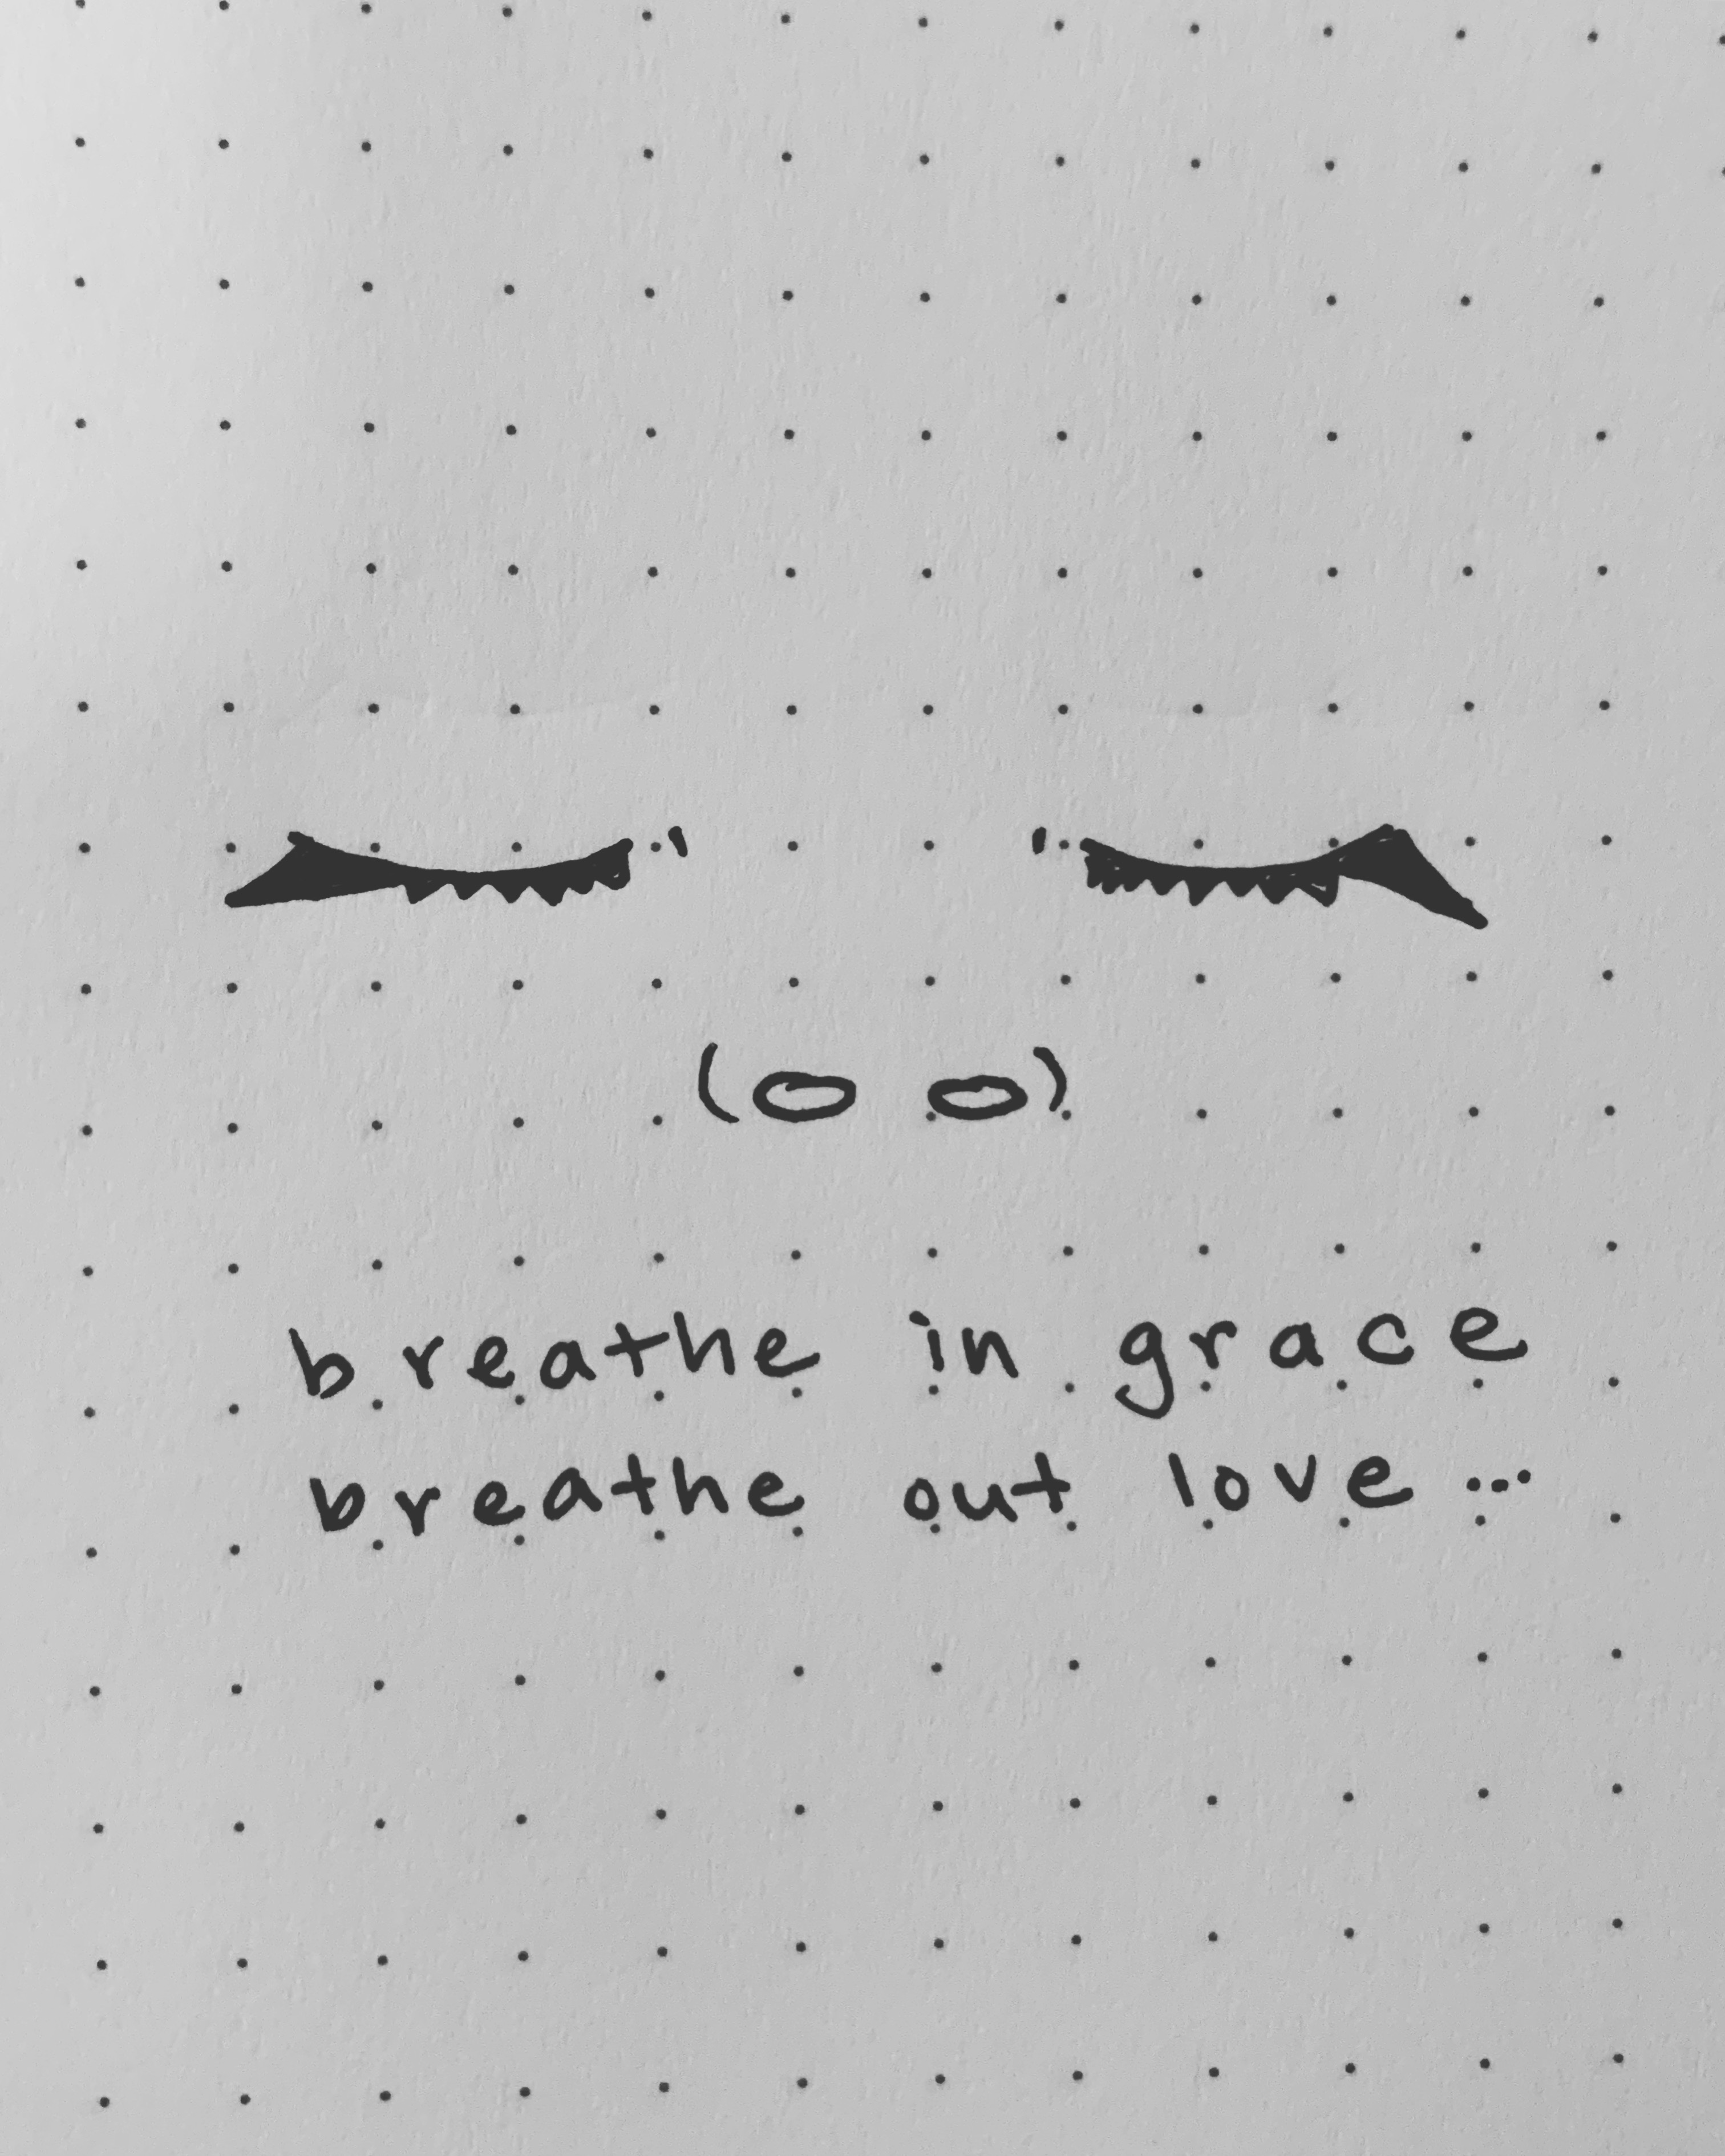 breathe in grace
breathe out love...